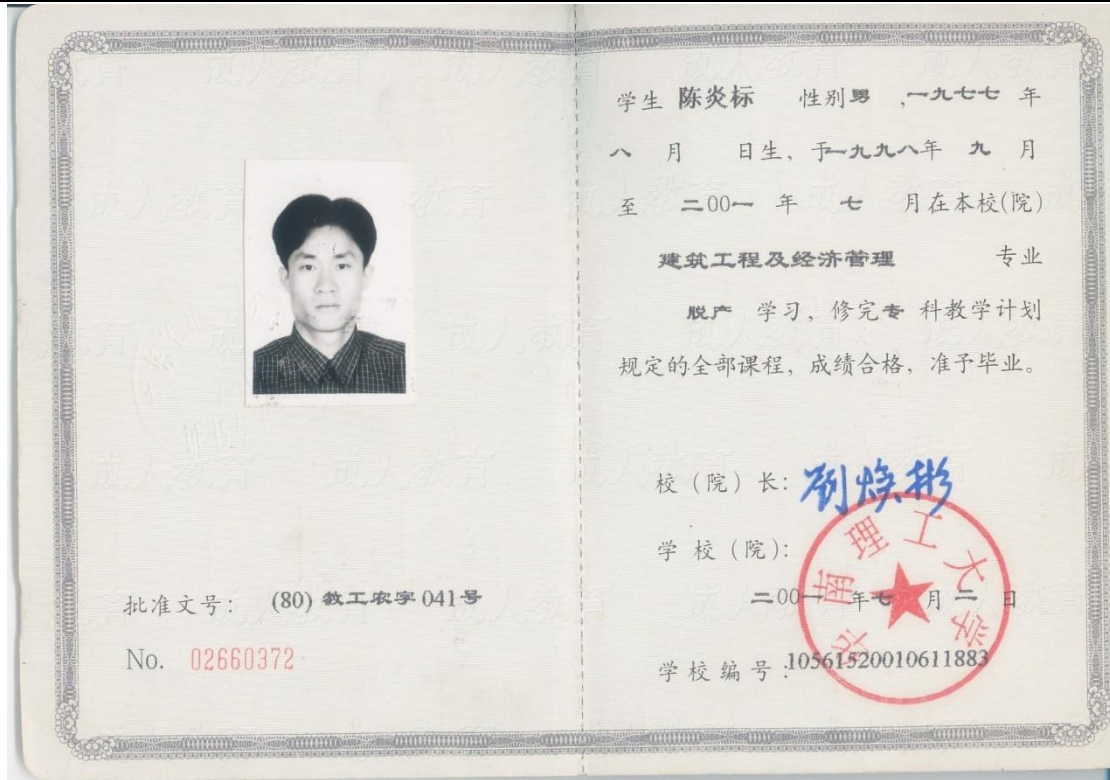 批准文号： (80) 教工农字 041号
No. 02660372
学生 陈炎标 性别男 ,一九七七 年
八 月 日生，于一九九八年 九 月
至 二00一 年 七 月在本校(院)
建筑工程及经济管理 专业
脱产 学习，修完专 科教学计划
规定的全部课程，成绩合格，准予毕业。
校（院）长：刘焕彬
学 校（院）：
华南理工大学
二00一 年七 月二 日
学 校 编 号：10561520010611883
成人教育